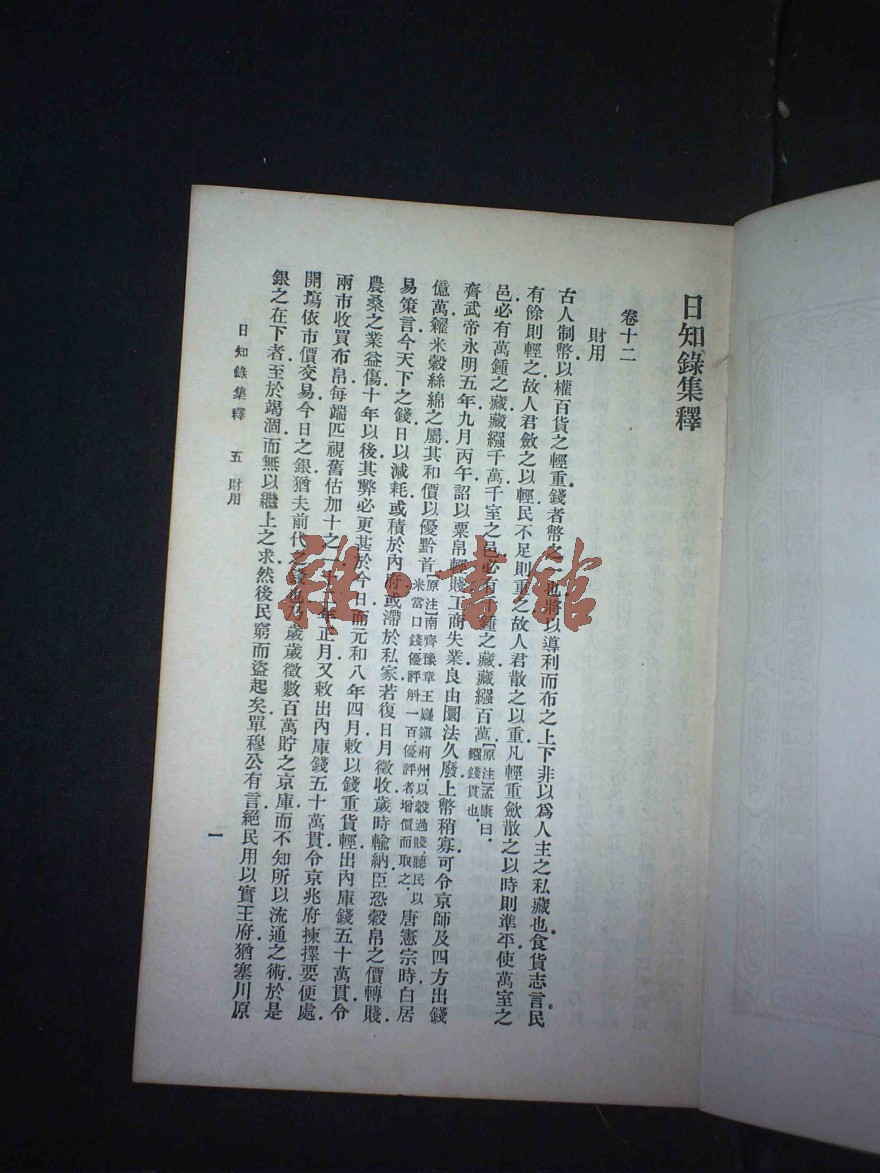 日知錄集釋
卷十二
財用
古人制幣以權百貨之輕重錢者幣之一也將以導利而布之上下非以爲人主之私藏也。食貨志言民
有餘則輕之故人君斂之以輕民不足則重之故人君散之以重凡輕重斂散之以時則準平使萬室之
邑必有萬鍾之藏藏繦千萬千室之邑必有千鍾之藏藏繦百萬【原注】孟康曰．繦錢貫也．
齊武帝永明五年九月丙午詔以粟帛輕賤工商失業良由圜法久廢上幣稍寡可令京師及四方出錢
億萬糴米穀絲綿之屬其和價以優黔首【原注】南齊豫章王嶷鎮荊州．以穀過賤．聽民以米當口錢優評斛一百優評者增價而取之．唐憲宗時白居
易策言今天下之錢日以減耗或積於內府或滯於私家若復日月徵收歲時輸納臣恐穀帛之價轉賤
農桑之業益傷十年以後其弊必更甚於今日而元和八年四月敕以錢重貨輕出內庫錢五十萬貫令
兩市收買布帛每端匹視舊估加十之一十二年正月又敕出內庫錢五十萬貫令京兆府揀擇要便處
開場依市價交易今日之銀猶夫前代之錢也乃歲歲徵數百萬貯之京庫而不知所以流通之術於是
銀之在下者至於竭涸而無以繼上之求然後民窮而盜起矣單穆公有言絕民用以實王府猶塞川原
日知錄集釋 五 財用
一
雜·書館